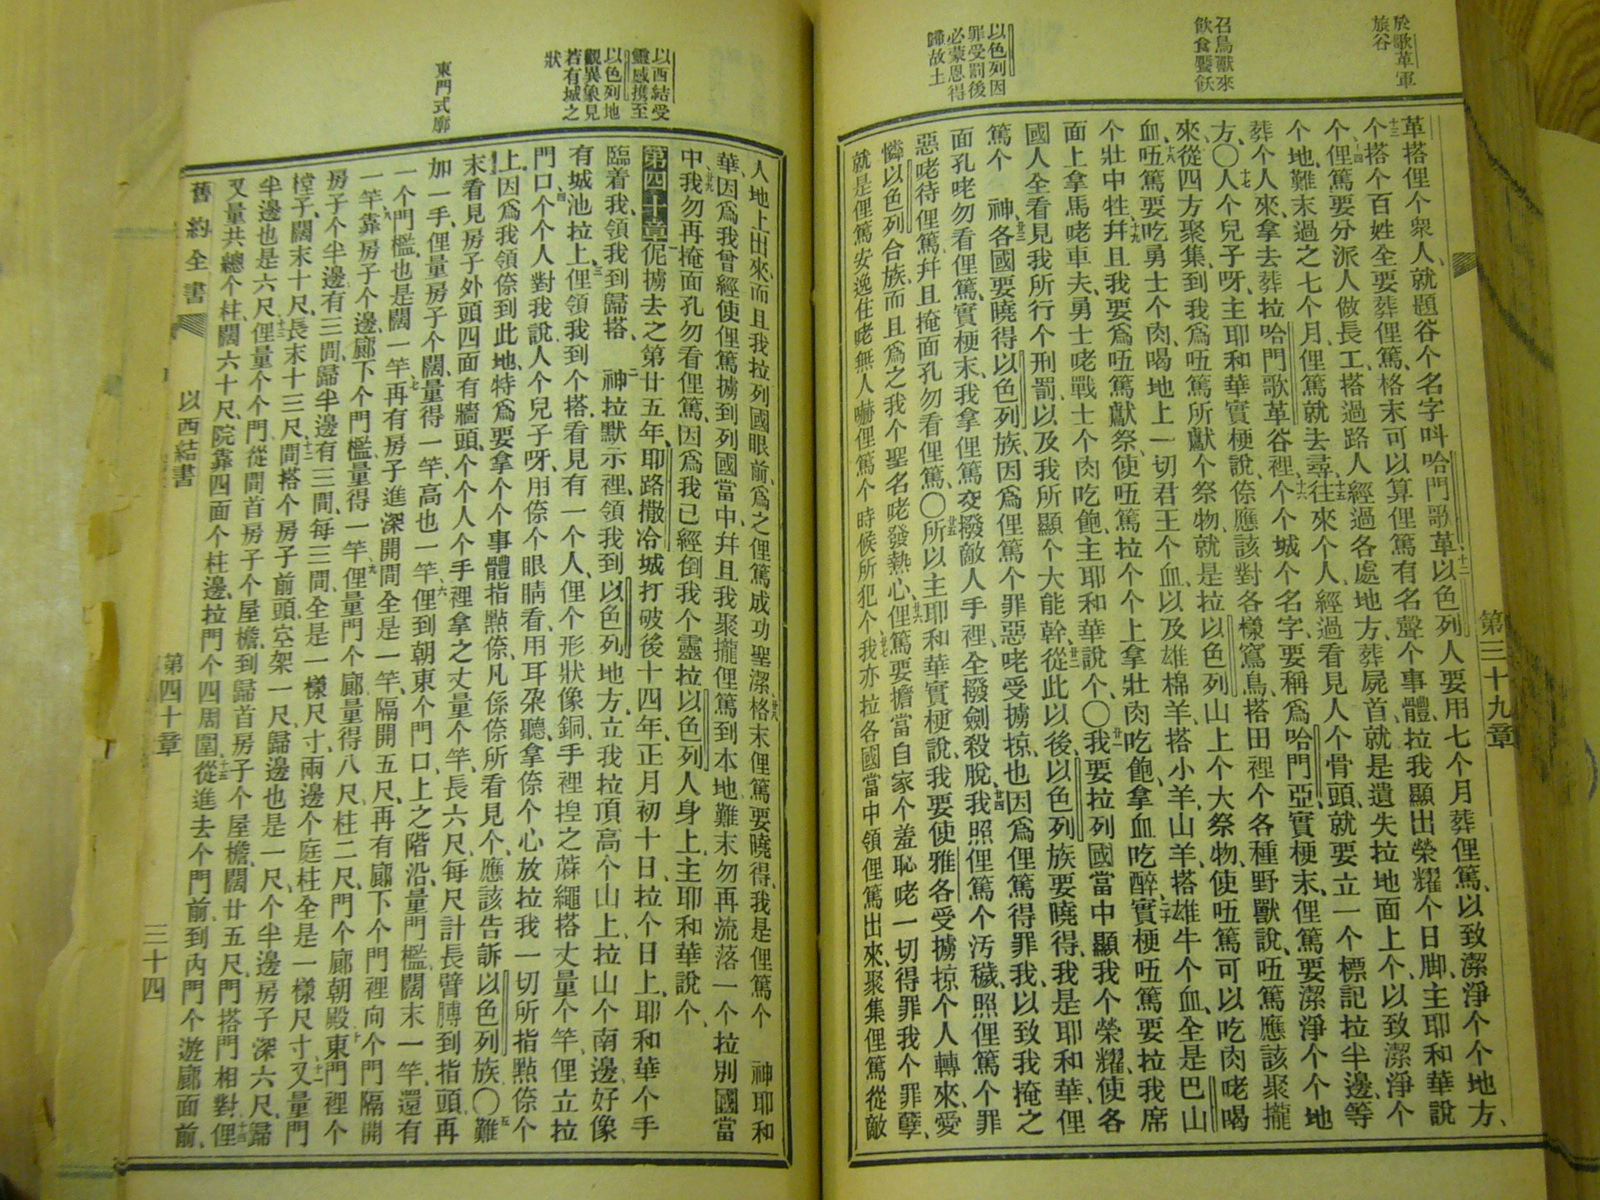 於歌革軍
旅谷
召鳥獸來
飲食饜飫
以色列因
罪受罰後
必蒙恩得
歸故土
第三十九章
革搭俚个衆人、就題谷个名字呌哈門歌革、十二以色列人要用七个月葬俚篤、以致潔淨个个地方、
十三个搭个百姓全要葬俚篤、格末可以算俚篤有名聲个事體、拉我顯出榮耀个日脚、主耶和華說
个、十四俚篤要分派人做長工、搭過路人經過各處地方、葬屍首、就是遺失拉地面上个、以致潔淨个
个地、難末過之七个月、俚篤就去尋、十五往來个人經過看見人个骨頭、就要立一个標記拉半邊、等
葬个人來、拿去葬拉哈門歌革谷裡、十六个个城个名字、要稱爲哈門亞、實梗末、俚篤要潔淨个个地
方、〇十七人个兒子呀、主耶和華實梗說、倷應該對各樣窵鳥、搭田裡个各種野獸說、吾篤應該聚攏
來、從四方聚集到我爲吾篤所獻个祭物、就是拉以色列山上个大祭物、使吾篤可以吃肉咾喝
血、十八吾篤要吃勇士个肉、喝地上一切君王个血、以及雄棉羊、搭小羊、山羊、搭雄牛个血、全是巴山
个壯中牲、十九幷且我要爲吾篤獻祭、使吾篤拉个个上拿壯肉吃飽、拿血吃醉、二十實梗吾篤要拉我席
面上拿馬咾車夫、勇士咾戰士个肉吃飽、主耶和華說个、〇廿一我要拉列國當中顯我个榮耀、使各
國人全看見我所行个刑罰、以及我所顯个大能幹、廿二從此以後、以色列族要曉得我是耶和華、俚
篤个 神、廿三各國要曉得以色列族、因爲俚篤个罪惡咾受擄掠、也因爲俚篤得罪我、以致我掩之
面孔咾勿看俚篤、實梗末、我拿俚篤交撥敵人手裡、全撥劍殺脫、廿四我照俚篤个汚穢、照俚篤个罪
惡咾待俚篤、幷且掩面孔勿看俚篤、〇廿五所以主耶和華實梗說、我要使雅各受擄掠个人轉來、愛
憐以色列合族、而且爲之我个聖名咾發熱心、廿六俚篤要擔當自家个羞恥咾一切得罪我个罪孽、
就是俚篤安逸住咾無人嚇俚篤个時候所犯个、廿七我亦拉各國當中領俚篤出來、聚集俚篤從敵
以西結受
靈感攜至
以色列地
觀異象見
若有城之
狀
東門式廓
人地上出來、而且我拉列國眼前、爲之俚篤成功聖潔、廿八格末俚篤要曉得、我是俚篤个 神耶和
華、因爲我曾經使俚篤擄到列國當中、幷且我聚攏俚篤到本地、難末勿再流落一个拉別國當
中、廿九我勿再掩面孔勿看俚篤、因爲我已經倒我个靈拉以色列人身上、主耶和華說个、
第四十章 伲擄去之第廿五年、耶路撒冷城打破後十四年、正月初十日、拉个日上、耶和華个手
臨着我、領我到歸搭、 二神拉默示裡、領我到以色列地方、立我拉頂高个山上、拉山个南邊、好像
有城池拉上、三俚領我到个搭、看見有一个人、俚个形狀像銅、手裡揑之蔴繩、搭丈量个竿、俚立拉
門口、四个个人對我說、人个兒子呀、用倷个眼睛看、用耳朶聽、拿倷个心放拉我一切所指點倷个
上、因爲我領倷到此地、特爲要拿个个事體指點倷、凡係倷所看見个、應該告訴以色列族、〇五難
末看見房子外頭四面有牆頭、个个人个手裡拿之丈量个竿、長六尺、每尺計長臂膊到指頭、再
加一手、俚量房子个闊、量得一竿、高也一竿、六俚到朝東个門口、上之階沿、量門檻闊末一竿、還有
一个門檻也是闊一竿、七再有房子進深開間全是一竿、隔開五尺、再有廊下个門裡向个門隔開
一竿、靠房子个邊、八廊下个門檻量得一竿、九俚量門个廊、量得八尺、柱二尺、門个廊朝殿、十東門裡个
房子个半邊有三間、歸半邊有三間、每三間全是一樣尺寸、兩邊个庭柱全是一樣尺寸、十一又量門
樘子、闊末十尺、長末十三尺、十二間搭个房子前頭、空架一尺、歸邊也是一尺、个半邊房子深六尺、歸
半邊也是六尺、十三俚量个个門、從間首房子个屋檐、到歸首房子个屋檐、闊廿五尺、門搭門相對、十四俚
又量共總个柱、闊六十尺、院靠四面个柱邊、拉門个四周圍、十五從進去个門前、到內門个遊廊面前、
舊約全書 以西結書 第四十章 三十四